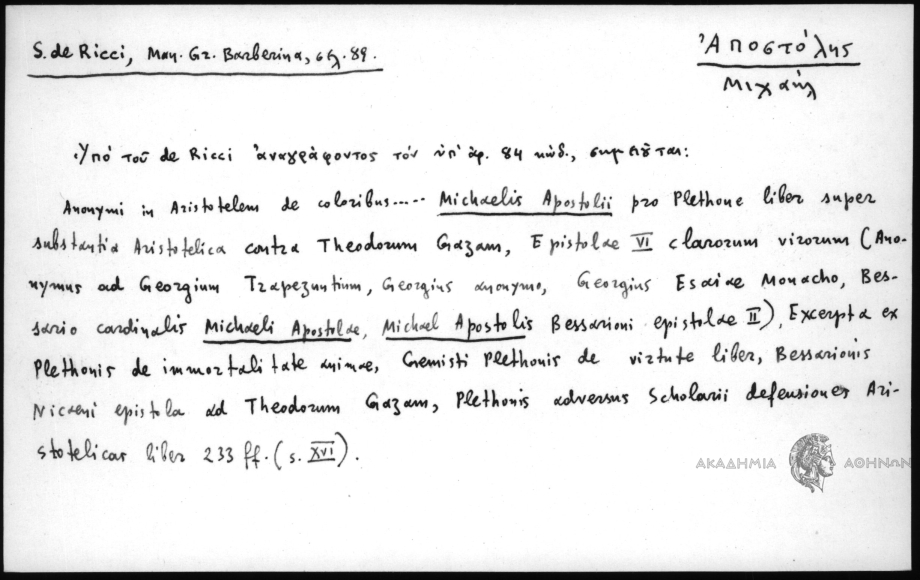 S. de Ricci, Man. Gr. Barberina, σελ. 89.
Ἀποστόλης
Μιχαήλ
Ὑπό τοῦ de Ricci ἀναγράφοντος τόν ὑπ' ἀρ. 84 κώδ., σημειοῦται:
Anonymi in Aristotelem de coloribus..... Michaelis Apostolii pro Plethone liber super
substantia Aristotelica contra Theodorum Gazam, Epistolae VI clarorum virorum (Ano-
nymus ad Georgium Trapezuntium, Georgius anonymo, Georgius Esaiae Monacho, Bes-
sario cardinalis Michaeli Apostolae, Michael Apostolis Bessarioni epistolae II), Excerpta ex
Plethonis de immortalitate animae, Gemisti Plethonis de virtute liber, Bessarionis
Nicaeni epistola ad Theodorum Gazam, Plethonis adversus Scholarii defensiones Ari-
stotelicas liber 233 ff. (s. XVI).
ΑΚΑΔΗΜΙΑ ΑΘΗΝΩΝ